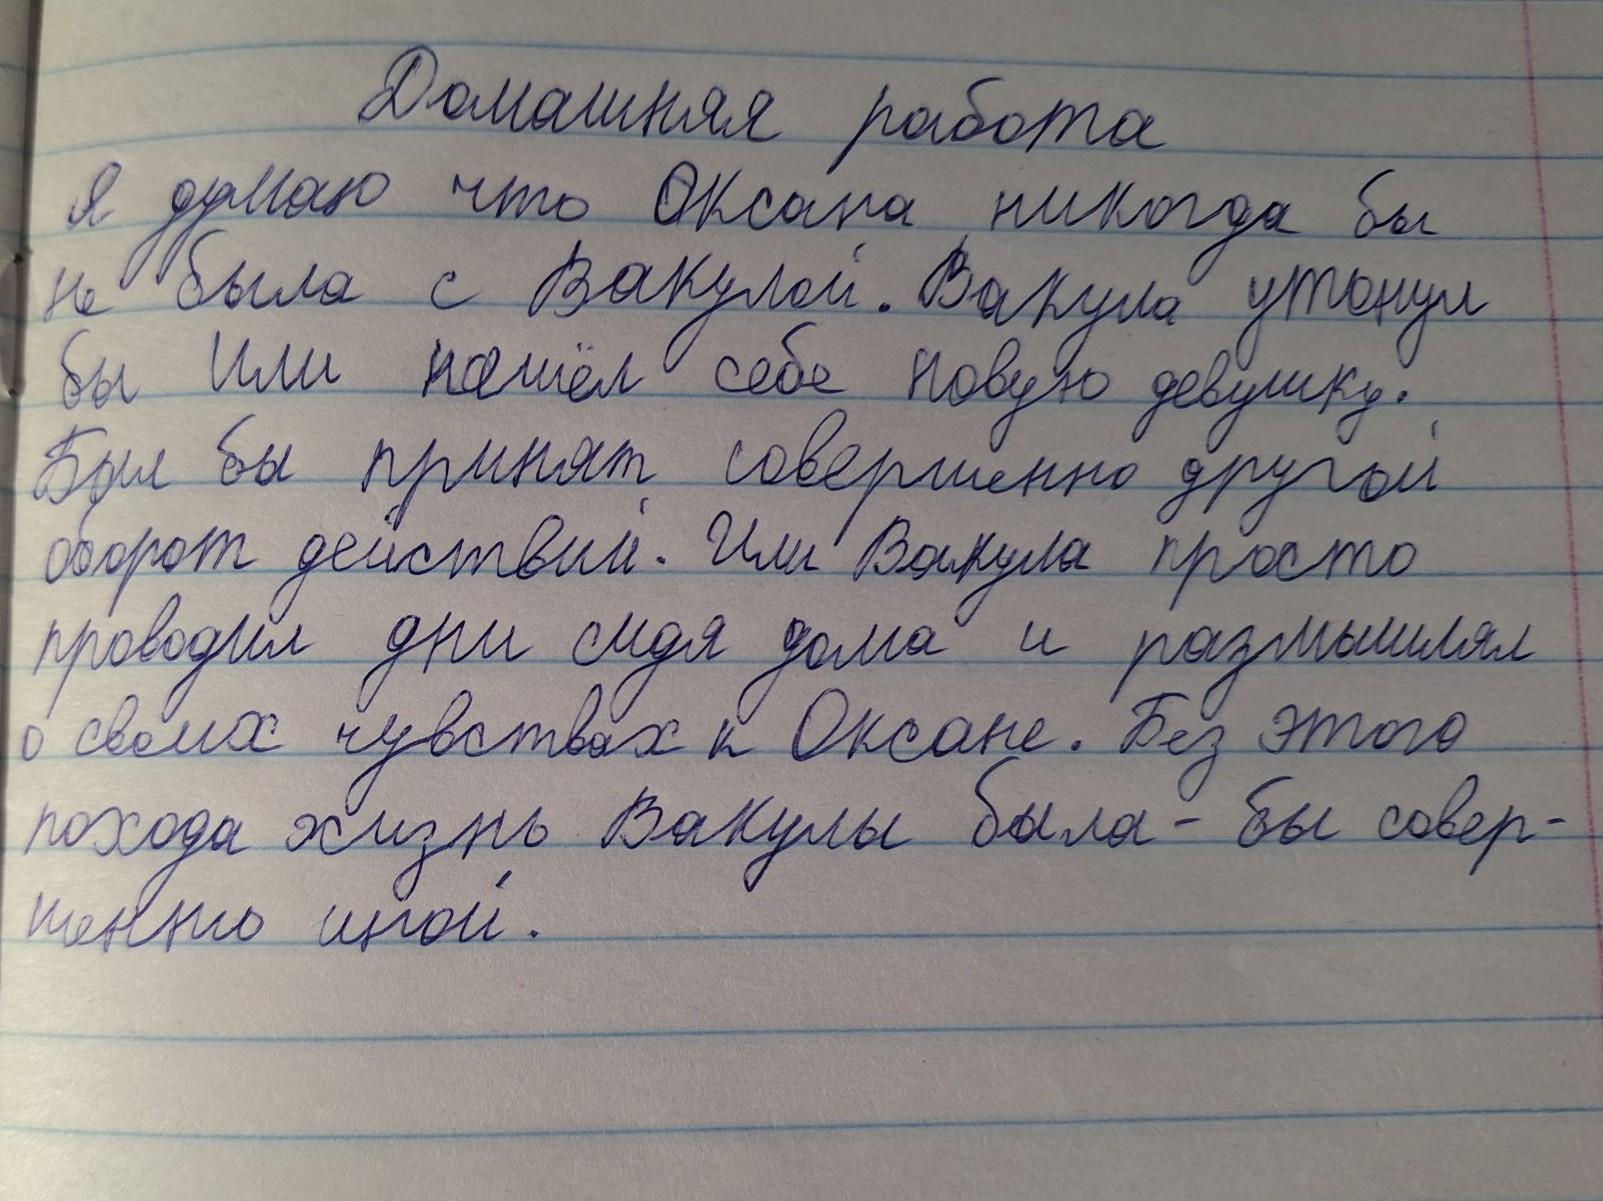 Домашняя работа
Я думаю что Оксана никогда бы
не была с Вакулой. Вакула утонул
бы Или нашёл себе новую девушку.
Был бы принят совершенно другой
оборот действий. Или Вакула просто
проводил дни сидя дома и размышлял
о своих чувствах к Оксане. Без этого
похода жизнь Вакулы была - бы совер-
шенно иной.